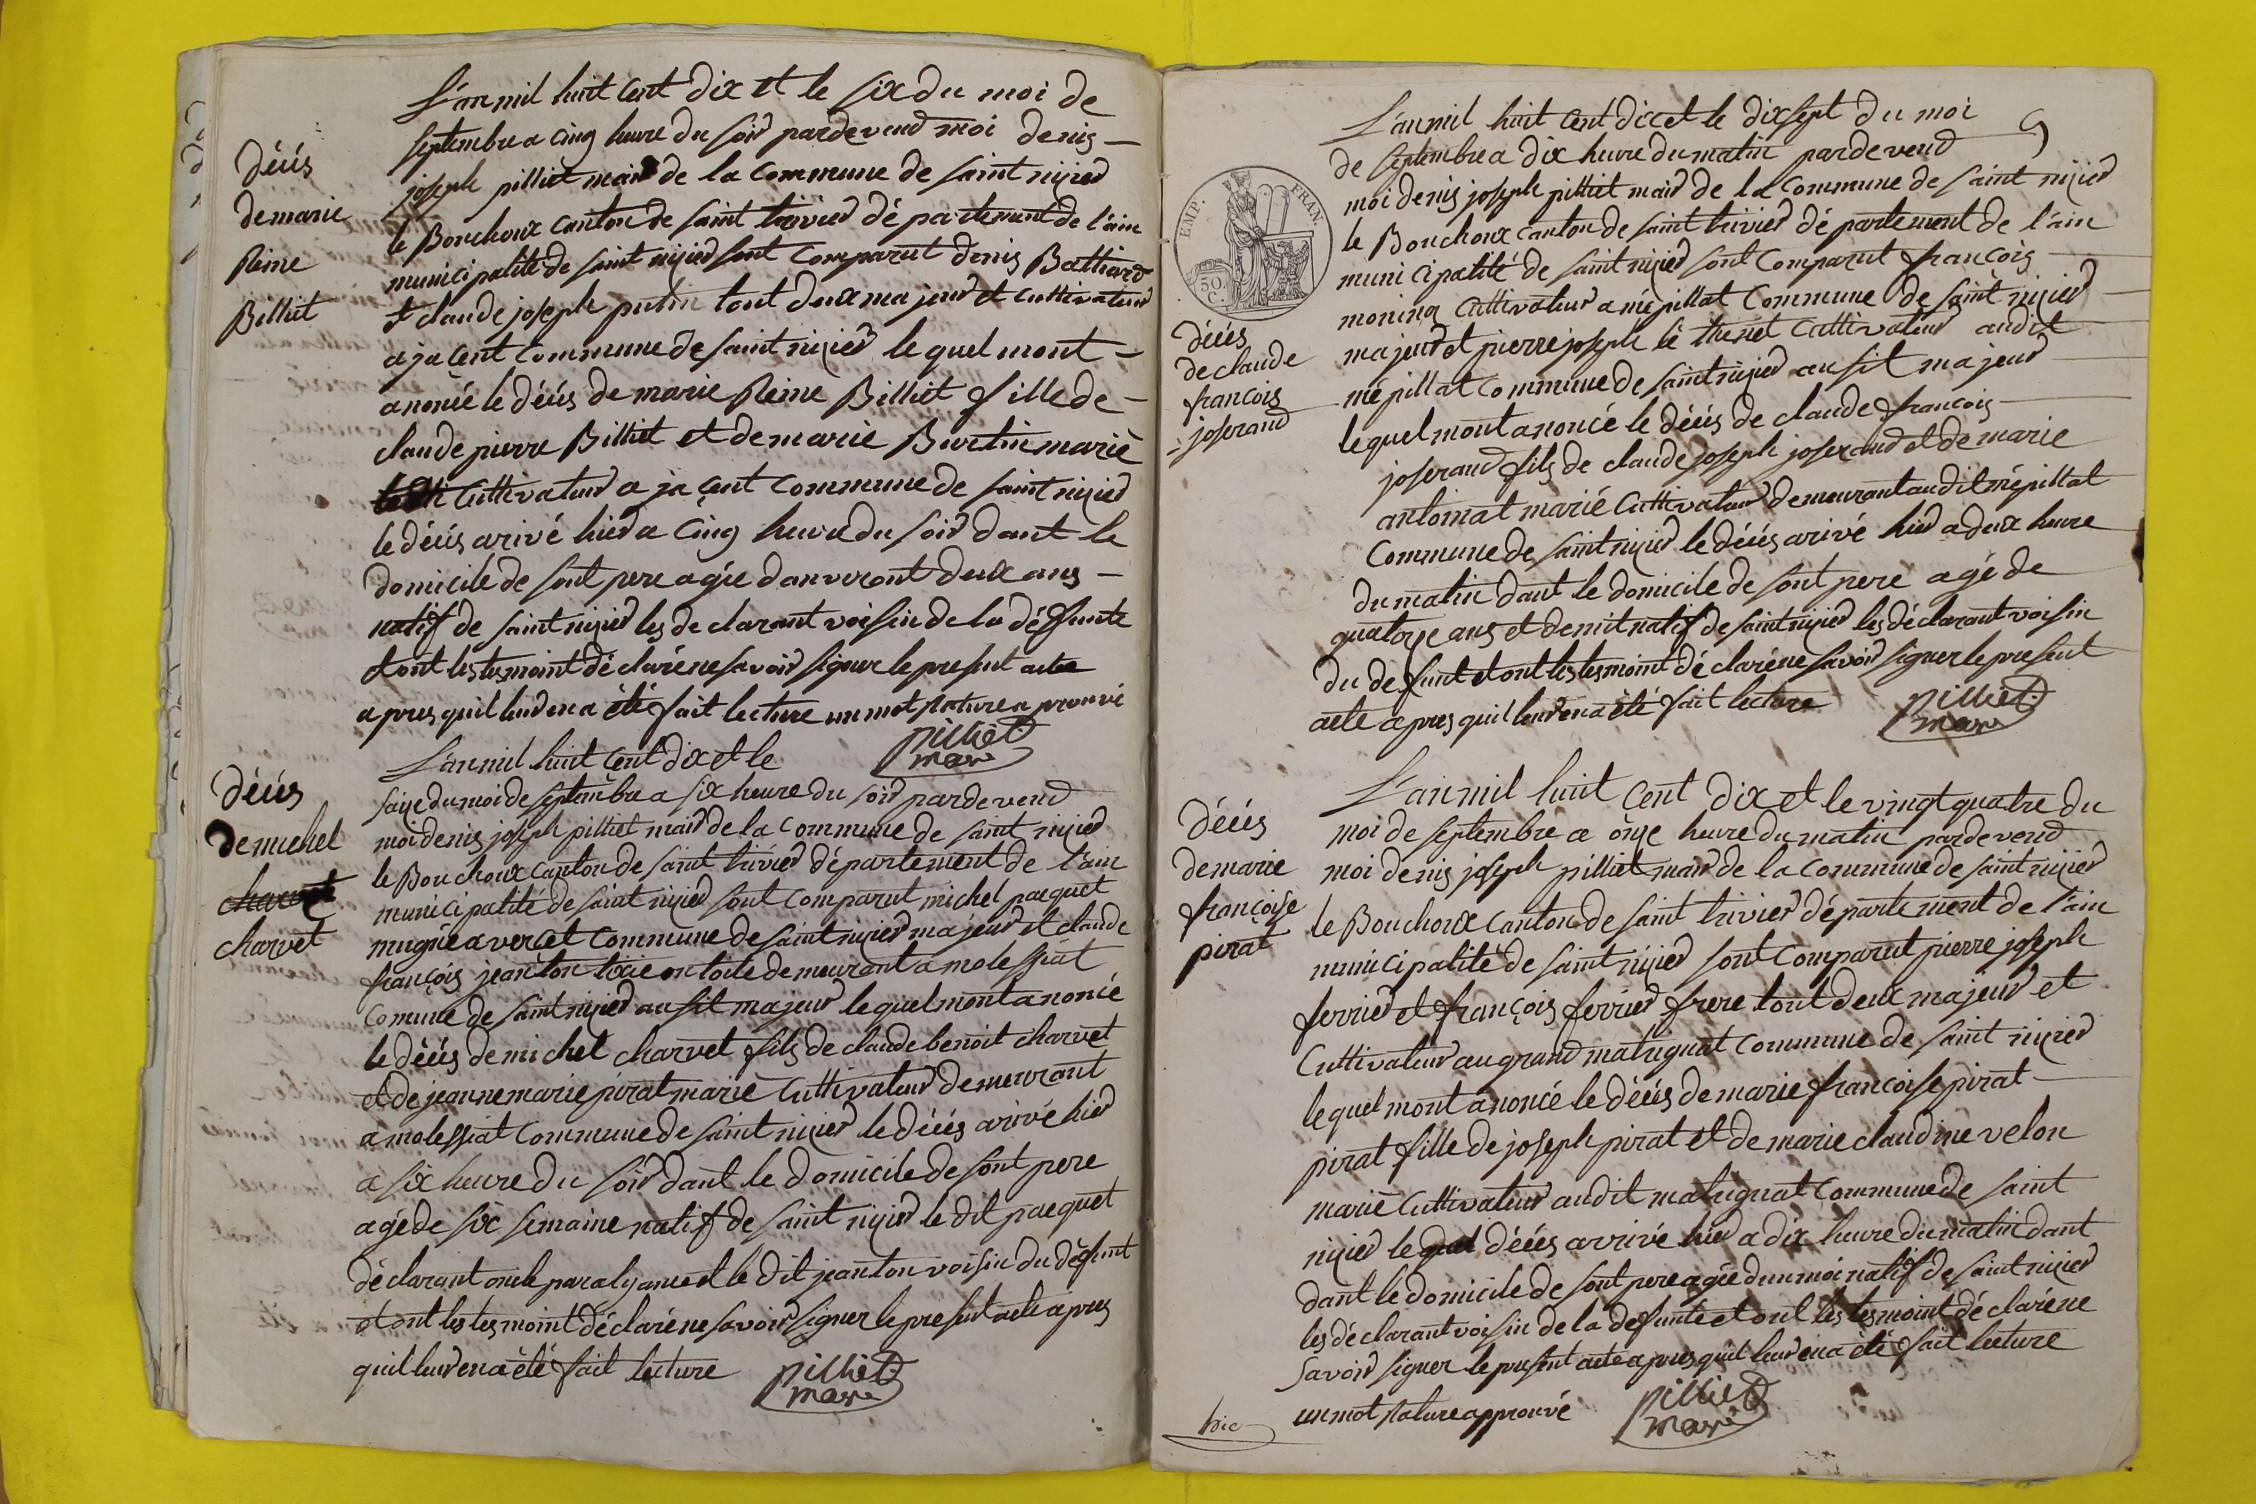 L'an mil huit Cent dix et le six du moi de
septembre a cinq heure du soir pardevend moi denis
joseph pilliet mair de la Commune de saint nizier
le Bouchoux canton de saint trivier département de l'ain
municipalité de saint nizier sont Comparut denis Bathiard
et claude joseph putin tout deux majeur et Cultivateur
a jacent Commune de saint nizier le quel mont
anoncé le décés de marie Reine Billiet fille de
claude pierre Billiet et de marie Burtin marié
Cultivateur a jacent Commune de saint nizier
le décés arivé hier a cinq heure du soir dant le
domicile de sont pere agée d'anviront deux ans
natif de saint nizier les declarant voisin de la défunte
et ont les tesmoint déclaré ne savoir signer le present acte
apres quil leur en a été fait lecture un mot rature aprouvé
pilliet
mair
décés
de marie
Reine
Billiet
L'an mil huit Cent dix et le
saize du moi de septembre a six heure du soir pardevend
moi denis joseph pilliet mair de la Commune de saint nizier
le Bouchoux canton de saint trivier département de l'ain
municipalité de saint nizier sont Comparut michel paequet
a vercet Commune de saint nizier majeur et claude
françois jeanton tixie en toile demeurant a molessiat
Comune de saint nizier ausit majeur le quel mont anoncé
le décés de michel charvet fils de claude benoit charvet
et de jeanne marie pirat marié Cultivateur demeurant
a molessiat Commune de saint nizier le décés arivé hier
a six heure du soir dant le domicile de sont pere
agé de six semaine natif de saint nizier le dit paequet
déclarant oncle par alyance et le dit jeanton voisin du défunt
et ont les tesmoint déclaré ne savoir signer le present acte apres
quil leur en a été fait lecture
pilliet
mair
décés
de michel
charvet
L'an mil huit Cent dix et le dix sept du moi
9
de septembre a dix heure du matin pardevend
moi denis joseph pilliet mair de la Commune de saint nizier
le Bouchoux canton de saint trivier département de l'ain
municipalité de saint nizier sont Comparut françois
monina Cultivateur a mépillat Commune de saint nizier
majeur et pierre joseph Cultivateur audit
mépillat Commune de saint nizier ausit majeur
le quel mont anoncé le décés de claude françois
joserand fils de claude joseph joserand et de marie
antoinat marié Cultivateur demeurant audit mépillat
Commune de saint nizier le décés arivé hier a deux heure
du matin dant le domicile de sont pere agé de
quatorze ans et demit natif de saint nizier les déclarant voisin
du defunt et ont les tesmoint déclaré ne savoir signer le present
acte apres quil leur en a été fait lecture
pilliet
mair
EMP. FRAN.
50
C.
décés
de claude
françois
joserand
L'an mil huit Cent dix et le vingt quatre du
moi de septembre a onze heure du matin pardevend
moi denis joseph pilliet mair de la Commune de saint nizier
le Bouchoux canton de saint trivier département de l'ain
municipalité de saint nizier sont Comparut pierre joseph
ferrier et françois ferrier frere tout deux majeur et
Cultivateur au grand matrignat Commune de saint nizier
le quel mont anoncé le décés de marie francoise pirat
pirat fille de joseph pirat et de marie claudine velon
marié Cultivateur audit matrignat Commune de saint
nizier le quel décés arrivé hier a dix heure du matin dant
dant le domicile de sont pere agée dun moi natif de saint nizier
les déclarant voisin de la defunte et ont les tesmoint déclaré ne
savoir signer le present acte apres quil leur en a été fait lecture
un mot rature approuvé
pilliet
mair
décés
de marie
françoise
pirat